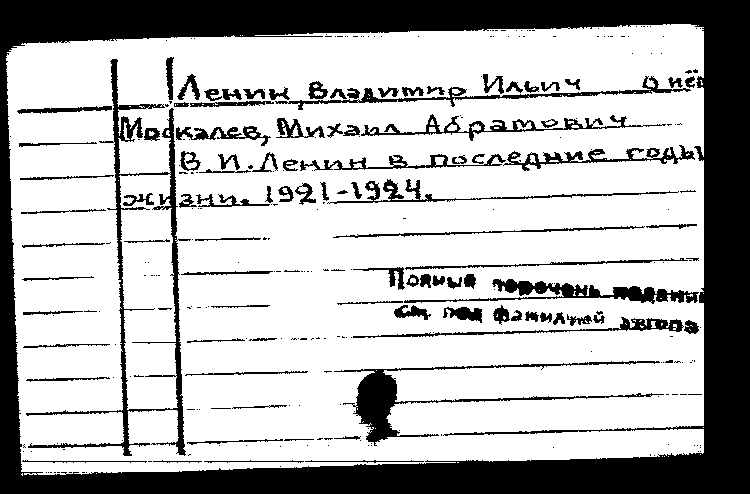 Ленин, Владимир Ильич о нём
Москалев, Михаил Абрамович
В.И.Ленин в последние годы
жизни. 1921-1924.
Полный перечень изданий
см. под фамилией автора